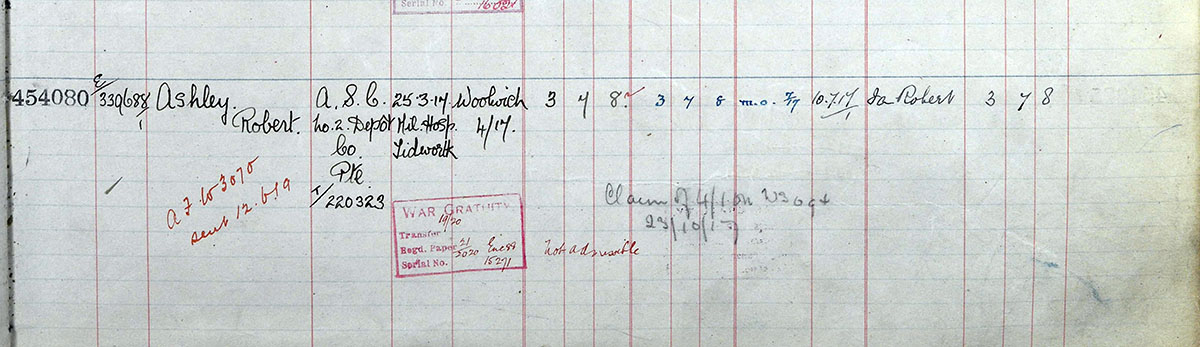 Serial No. 1602
E/
454080 339688/1 Ashley. A. S. C. 25.3.17 Woolwich 3 7 8. 3 7 8 m.o. 7/17 10.7.17 Fa Robert 3 7 8
Robert. No. 2. Depôt Mil. Hosp. 4/17.
Co. Tidworth
Pte
T/220323
A F. W 3070
sent 12.6.19
WAR GRATUITY
19/20
Transfer
Regd. Paper 21/5020
Serial No. 15271
Not admissible
Claim
23/10/17